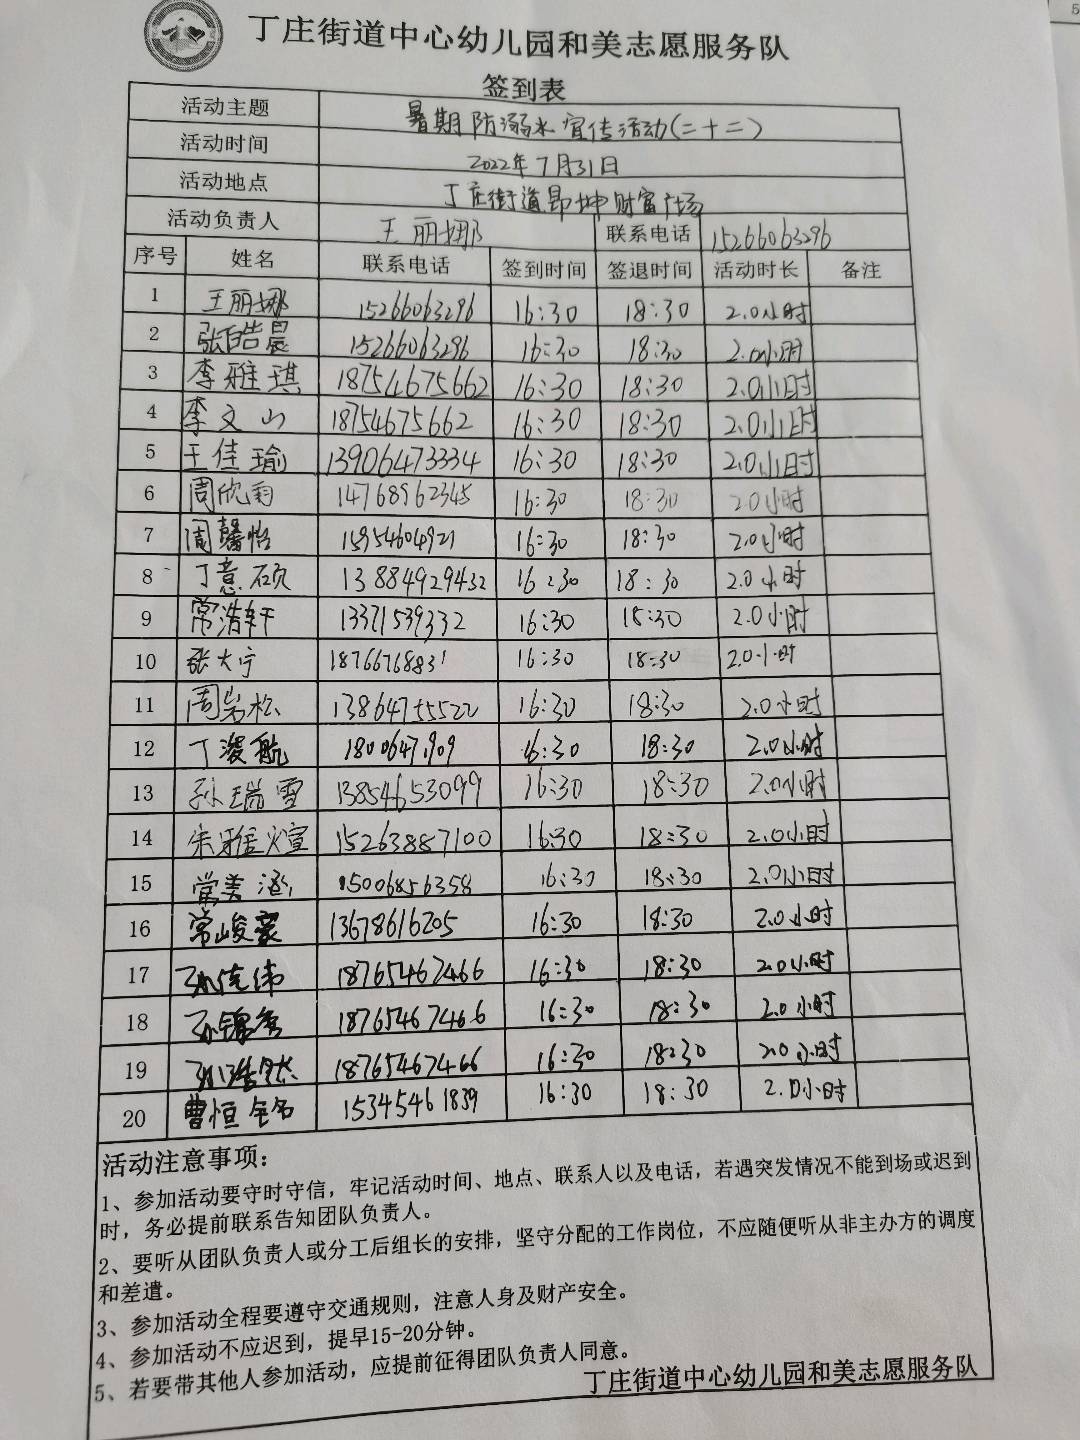 丁庄街道中心幼儿园和美志愿服务队
签到表
活动主题 暑期防溺水宣传活动(二十二)
活动时间 2022年7月31日
活动地点 丁庄街道昂坤财富广场
活动负责人 王丽娜 联系电话 15266063296
序号 姓名 联系电话 签到时间 签退时间 活动时长 备注
1 王丽娜 15266063296 16:30 18:30 2.0小时
2 张皓晨 15266063296 16:30 18:30 2.0小时
3 李雅琪 18754675662 16:30 18:30 2.0小时
4 李文山 18754675662 16:30 18:30 2.0小时
5 王佳瑜 13906473334 16:30 18:30 2.0小时
6 周欣雨 14768962345 16:30 18:30 2.0小时
7 周馨怡 15954604921 16:30 18:30 2.0小时
8 丁意硕 13884929432 16:30 18:30 2.0小时
9 常浩轩 13371539332 16:30 18:30 2.0小时
10 张大宁 18766768831 16:30 18:30 2.0小时
11 周岩松 13864755522 16:30 18:30 2.0小时
12 丁浚航 16:30 18:30 2.0小时
13 孙瑞雪 13854653099 16:30 18:30 2.0小时
14 朱雅煊 15263887100 16:30 18:30 2.0小时
15 常美涵 15006856358 16:30 18:30 2.0小时
16 常峻豪 13678616205 16:30 18:30 2.0小时
17 孙佳纬 18765467466 16:30 18:30 2.0小时
18 18765467466 16:30 18:30 2.0小时
19 孙浩然 18765467466 16:30 18:30 2.0小时
20 曹恒铭 15345461839 16:30 18:30 2.0小时
活动注意事项:
1、参加活动要守时守信，牢记活动时间、地点、联系人以及电话，若遇突发情况不能到场或迟到
时，务必提前联系告知团队负责人。
2、要听从团队负责人或分工后组长的安排，坚守分配的工作岗位，不应随便听从非主办方的调度
和差遣。
3、参加活动全程要遵守交通规则，注意人身及财产安全。
4、参加活动不应迟到，提早15-20分钟。
5、若要带其他人参加活动，应提前征得团队负责人同意。
丁庄街道中心幼儿园和美志愿服务队